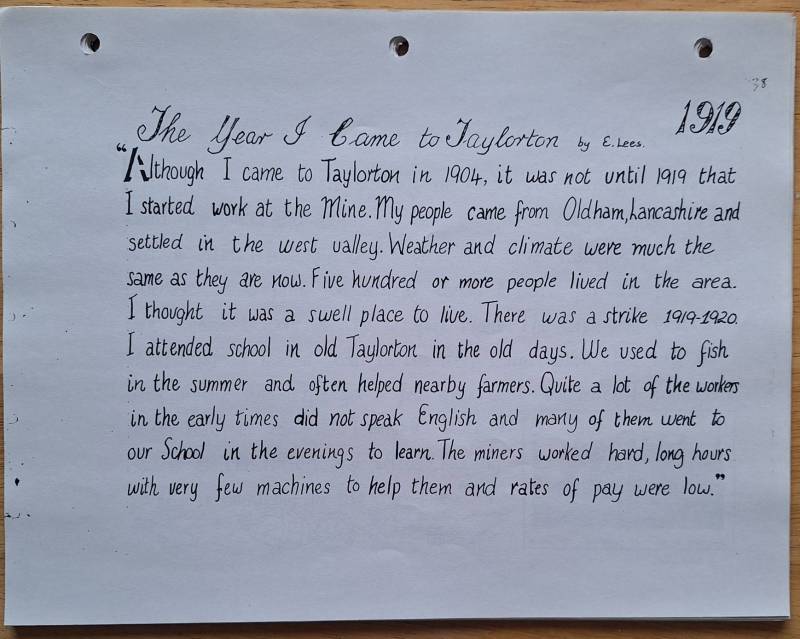 38
1919
The Year I Came to Taylorton by E. Lees.
"Although I came to Taylorton in 1904, it was not until 1919 that
I started work at the Mine. My people came from Oldham, Lancashire and
settled in the west valley. Weather and climate were much the
same as they are now. Five hundred or more people lived in the area.
I thought it was a swell place to live. There was a strike 1919-1920.
I attended school in old Taylorton in the old days. We used to fish
in the summer and often helped nearby farmers. Quite a lot of the workers
in the early times did not speak English and many of them went to
our School in the evenings to learn. The miners worked hard, long hours
with very few machines to help them and rates of pay were low."